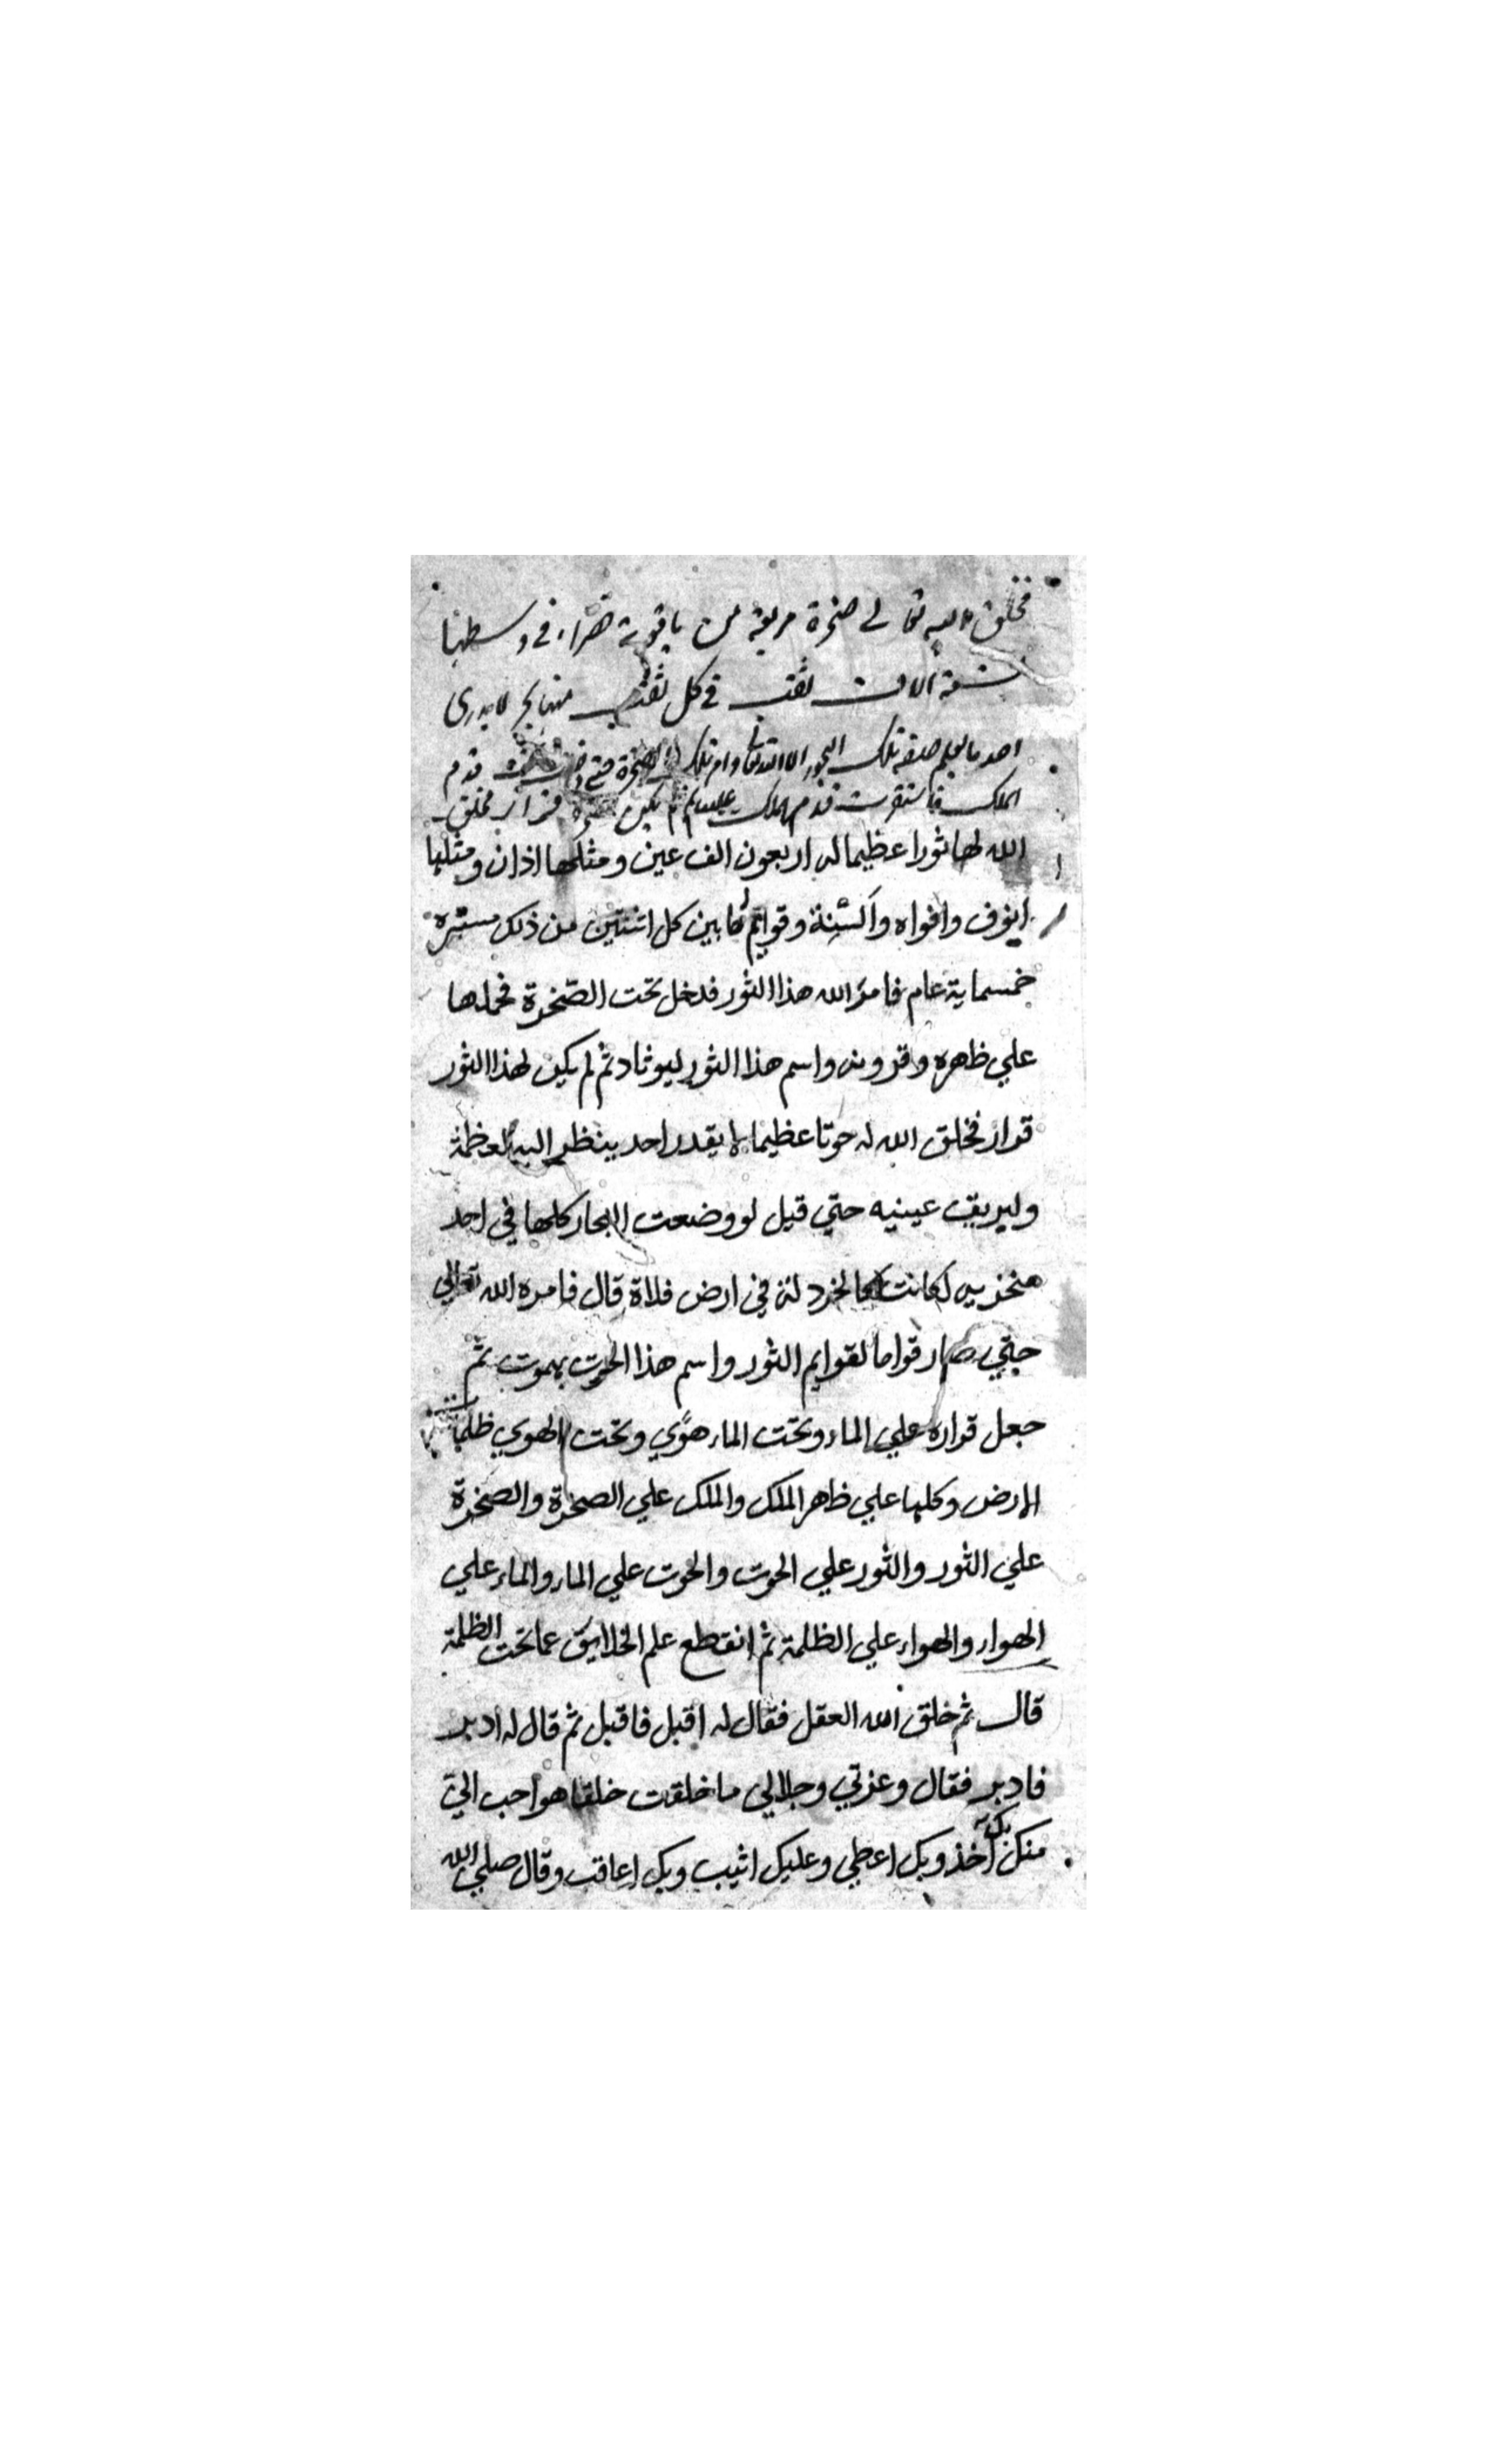 فخلق الله تعالى صخرة مربعة من ياقوتة خضراء في وسطها
سبعة الاف ثقب في كل ثقب منها بحر لا يدرى
احد ما يعلم صفة تلك البحور الا الله تعالى وامر تلك الصخرة حتى قدم
الملك فاستقرت قدم الملك عليها ثم لم يكن للصخرة قرار فخلق
الله لها ثورا عظيما له اربعون الف عين ومثلها اذان ومثلها
انوف وافواه وألسنة وقوايم ما بين كل اثنتين من ذلك مسيرة
خمسماية عام فامر الله هذا الثور فدخل تحت الصخرة فحملها
علي ظهره وقرونه واسم هذا الثور ليوثا ثم لم يكن لهذا الثور
قرار فخلق الله له حوتا عظيما لا يقدر احد ينظر اليه لعظمة
وليريق عينيه حتي قيل لو وضعت البحار كلها في احد
منخريه لكانت كالخردلة في ارض فلاة قال فامره الله تعالي
حتي صار قواما لقوايم الثور واسم هذا الحوت بهموت ثم
جعل قراره علي الماء وتحت الماء هوي وتحت الهوي ظلمات
الارض وكلها علي ظاهر الملك والملك علي الصخرة والصخرة
علي الثور والثور علي الحوت والحوت علي الماء والماء علي
الهواء والهواء علي الظلمة ثم انقطع علم الخلايق عما تحت الظلمة
قال ثم خلق الله العقل فقال له اقبل فاقبل ثم قال له ادبر
فادبر فقال وعزتي وجلالي ما خلقت خلقا هو احب الي
منك بك آخذ وبك اعطي وعليك اثيب وبك اعاقب وقال صلي الله